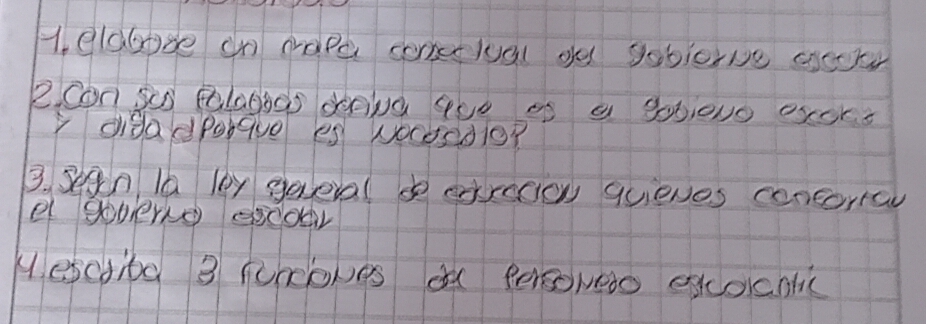 1. elabore un mapa conceptual del gobierno escolar
2. Con sus palabras defina que es el gobierno escolar
y diga ¿Porque es necesario?
3. Segun la ley general de educacion quienes conforman
el gobierno escolar
4. escriba 3 funciones del Personero estudiantil